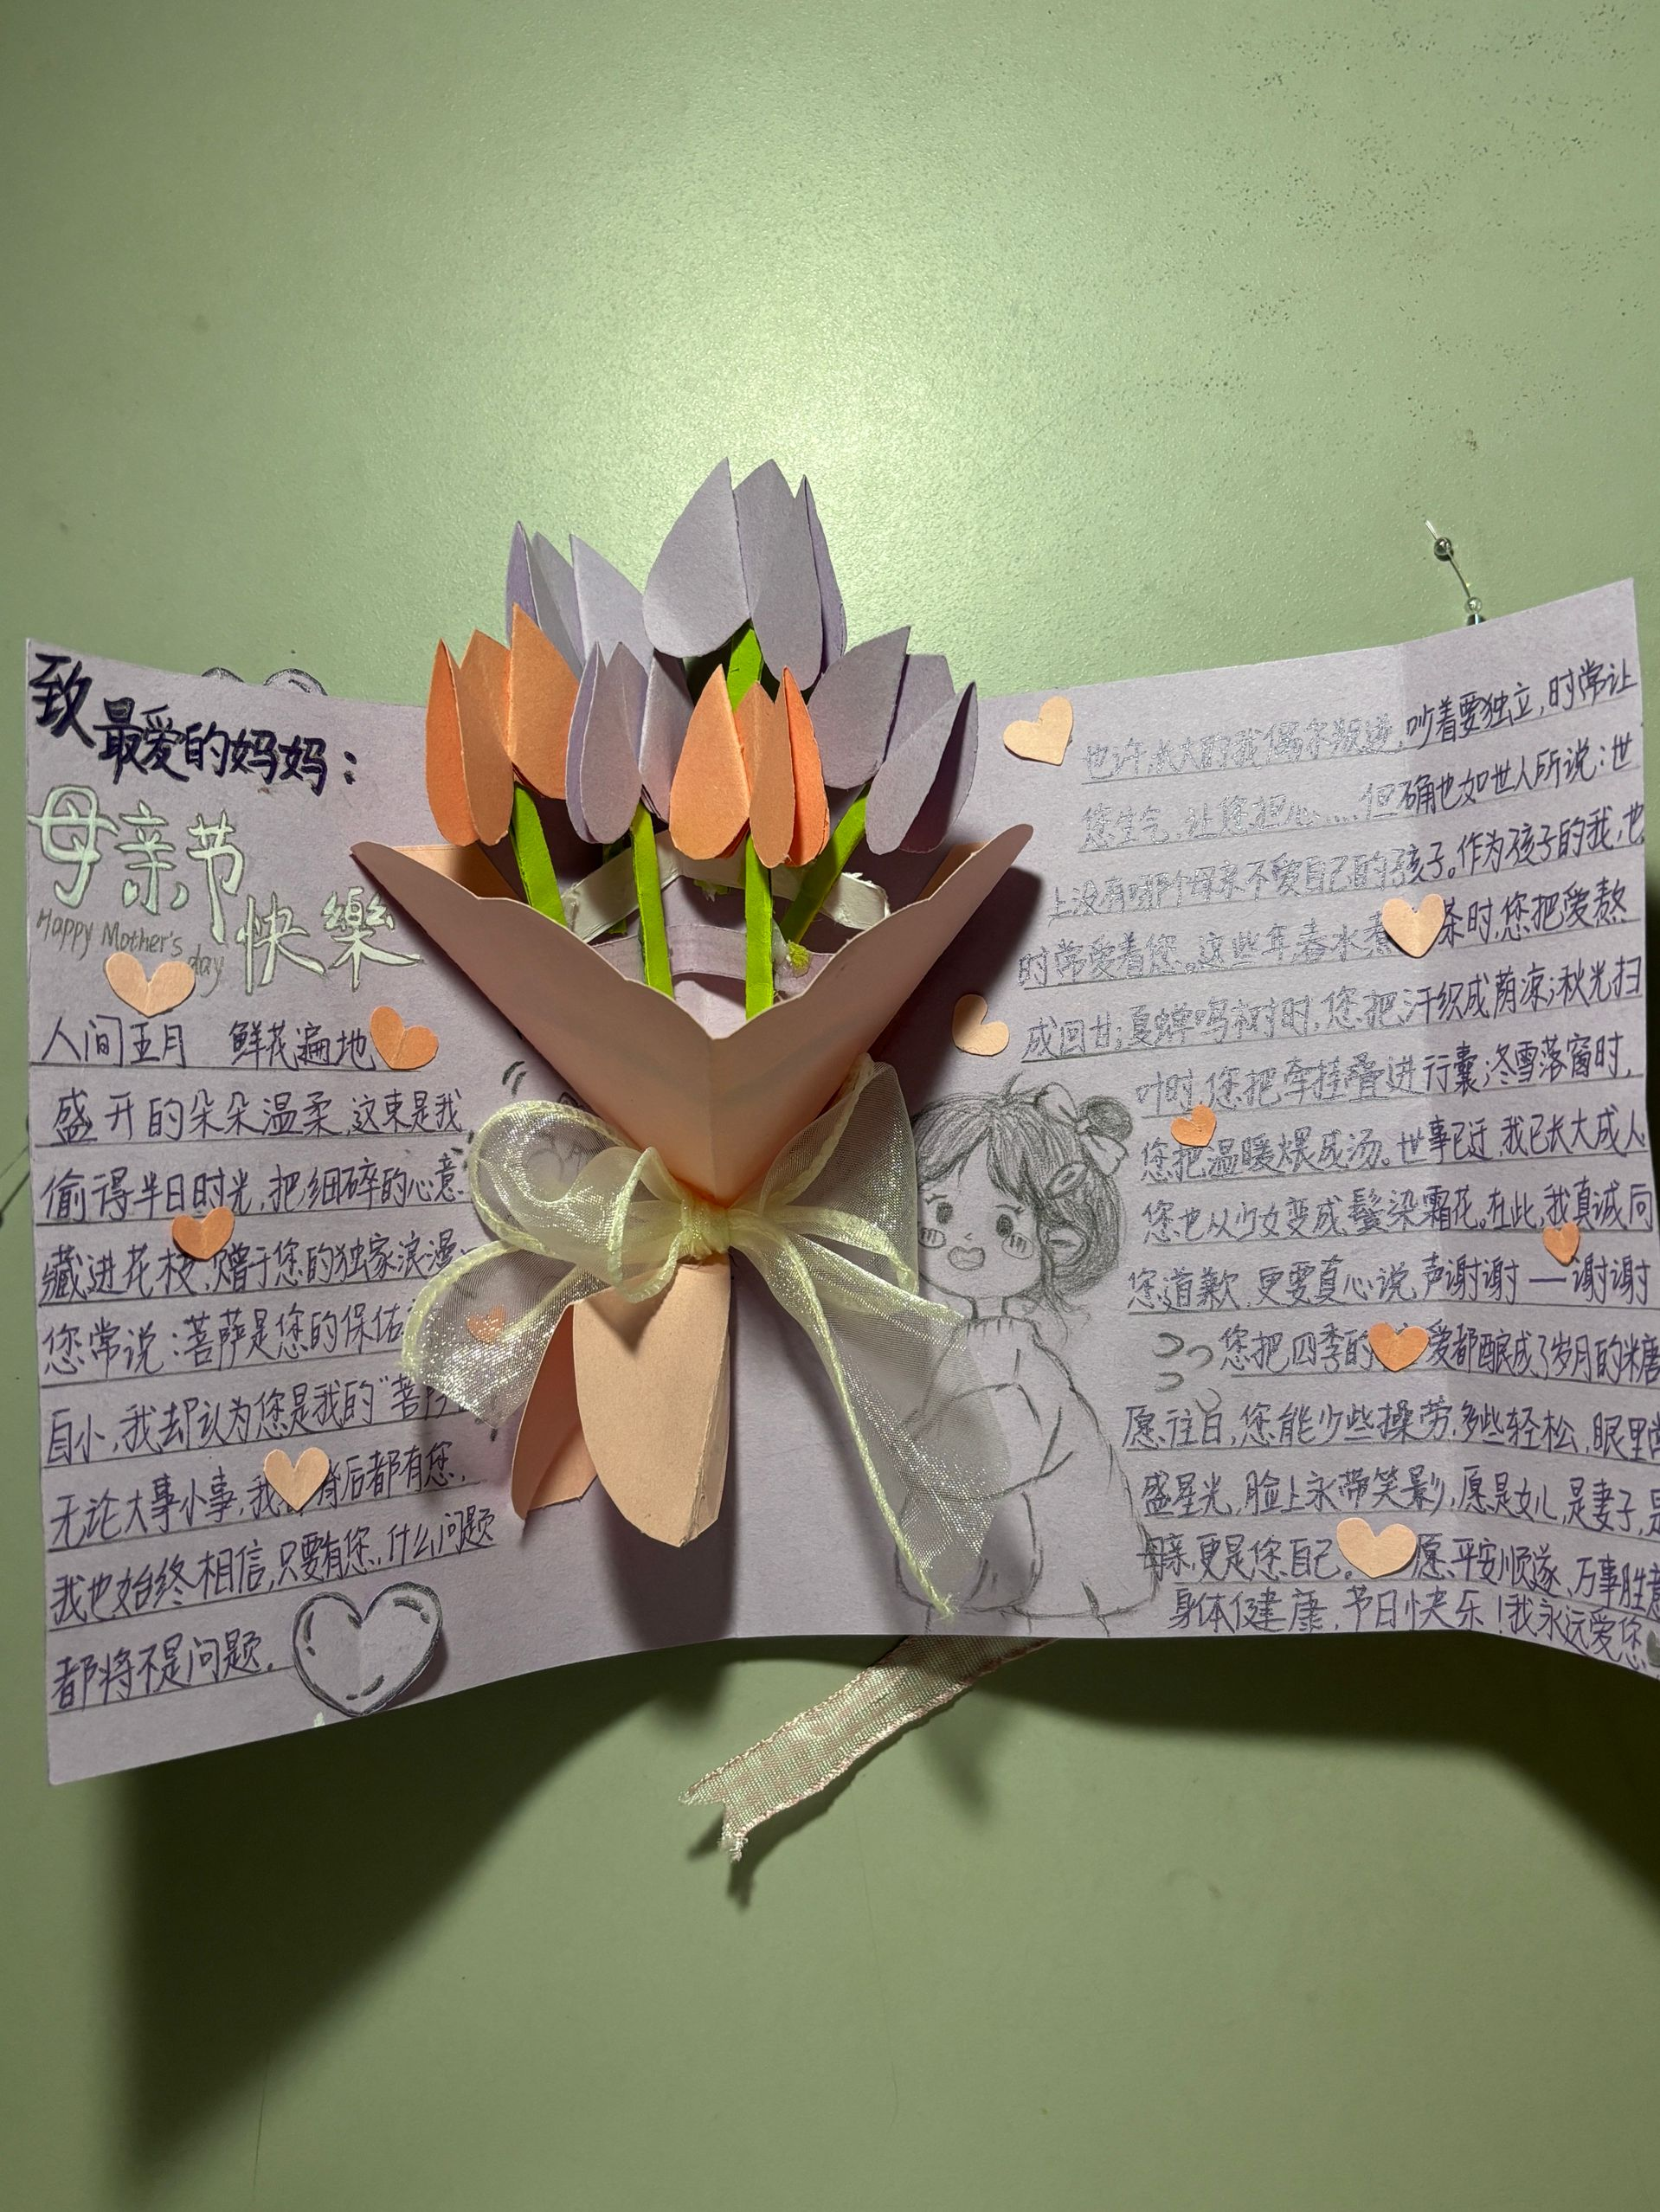 致最爱的妈妈：
母亲节
快樂
Happy Mother's
day
人间五月 鲜花遍地
盛开的朵朵温柔,这束是我
偷得半日时光,把细碎的心意
藏进花枝,赠于您的独家浪漫
您常说：菩萨是您的保佑
自小,我却认为您是我的“菩
无论大事小事,我 背后都有您,
我也始终相信,只要有您,什么问题
都将不是问题.
也许长大的我偶尔叛逆,吵着要独立,时常让
您生气,让您担心……但确也如世人所说：世
上没有哪个母亲不爱自己的孩子。作为孩子的我,也
时常爱着您。这些年春水煮 茶时,您把爱熬
成回甘;夏蝉鸣树时,您把汗织成荫凉;秋光扫
叶时,您把牵挂叠进行囊;冬雪落窗时,
您把温暖煨成汤。世事已迁,我已长大成人
您也从少女变成鬓染霜花。在此,我真诚向
您道歉,更要真心说,声谢谢——谢谢
您把四季的 爱都酿成了岁月的糖
愿往日,您能少些操劳,多些轻松,眼里
盛星光,脸上永带笑影,愿是女儿,是妻子,是
母亲,更是您自己。愿平安顺遂、万事胜意
身体健康,节日快乐！我永远爱您